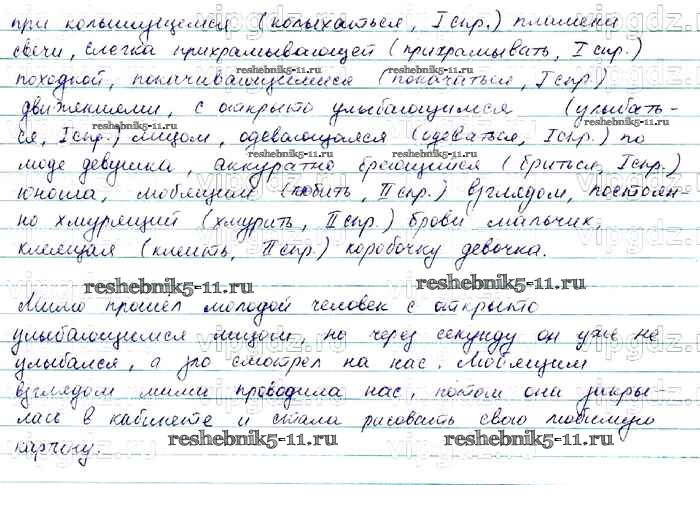 при колышущемся (колыхаться, I спр.) пламени
свечи, слегка прихрамывающей (прихрамывать, I спр.)
походкой, покачивающимися (покачаться, I спр.)
движениями, с открыто улыбающимся (улыбать-
ся, I спр.) лицом, одевающаяся (одеваться, I спр.) по
моде девушка, аккуратно бреющийся (бриться, I спр.)
юноша, любящим (любить, II спр.) взглядом, постоян-
но хмурящий (хмурить, II спр.) брови мальчик,
клеящая (клеить, II спр.) коробочку девочка.
reshebnik5-11.ru
Мимо прошёл молодой человек с открыто
улыбающимся лицом, но через секунду он уже не
улыбался, а зло смотрел на нас. Любящим
взглядом мими проводила нас, потом она закры
лась в кабинете и стала рисовать свою любимую
картину.
reshebnik5-11.ru